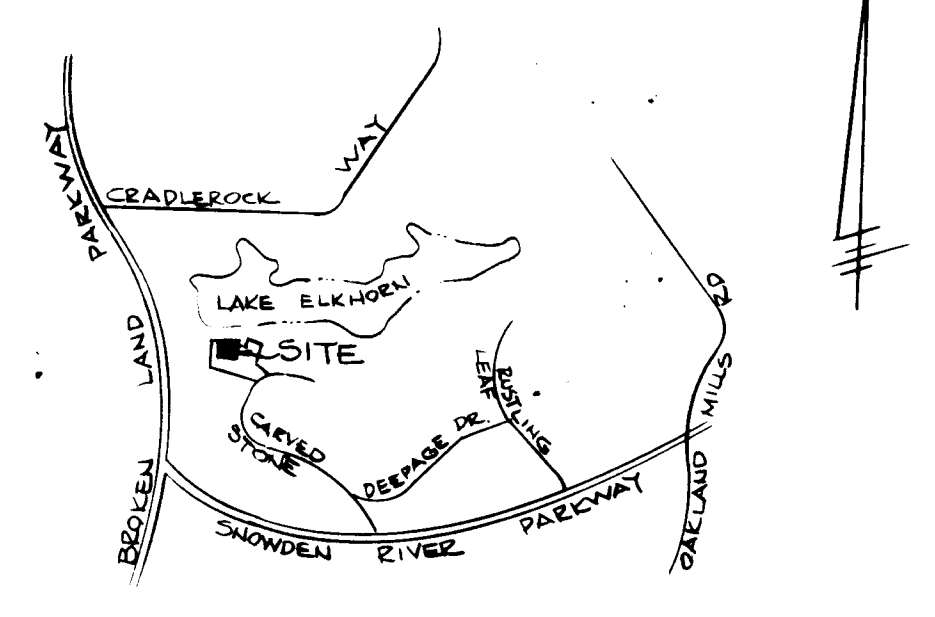 CRADLEROCK WAY
BROKEN LAND PARKWAY
LAKE ELKHORN
SITE
CARVED
STONE
DEEPAGE DR.
RUSTLING
LEAF
SNOWDEN RIVER PARKWAY
OAKLAND MILLS RD